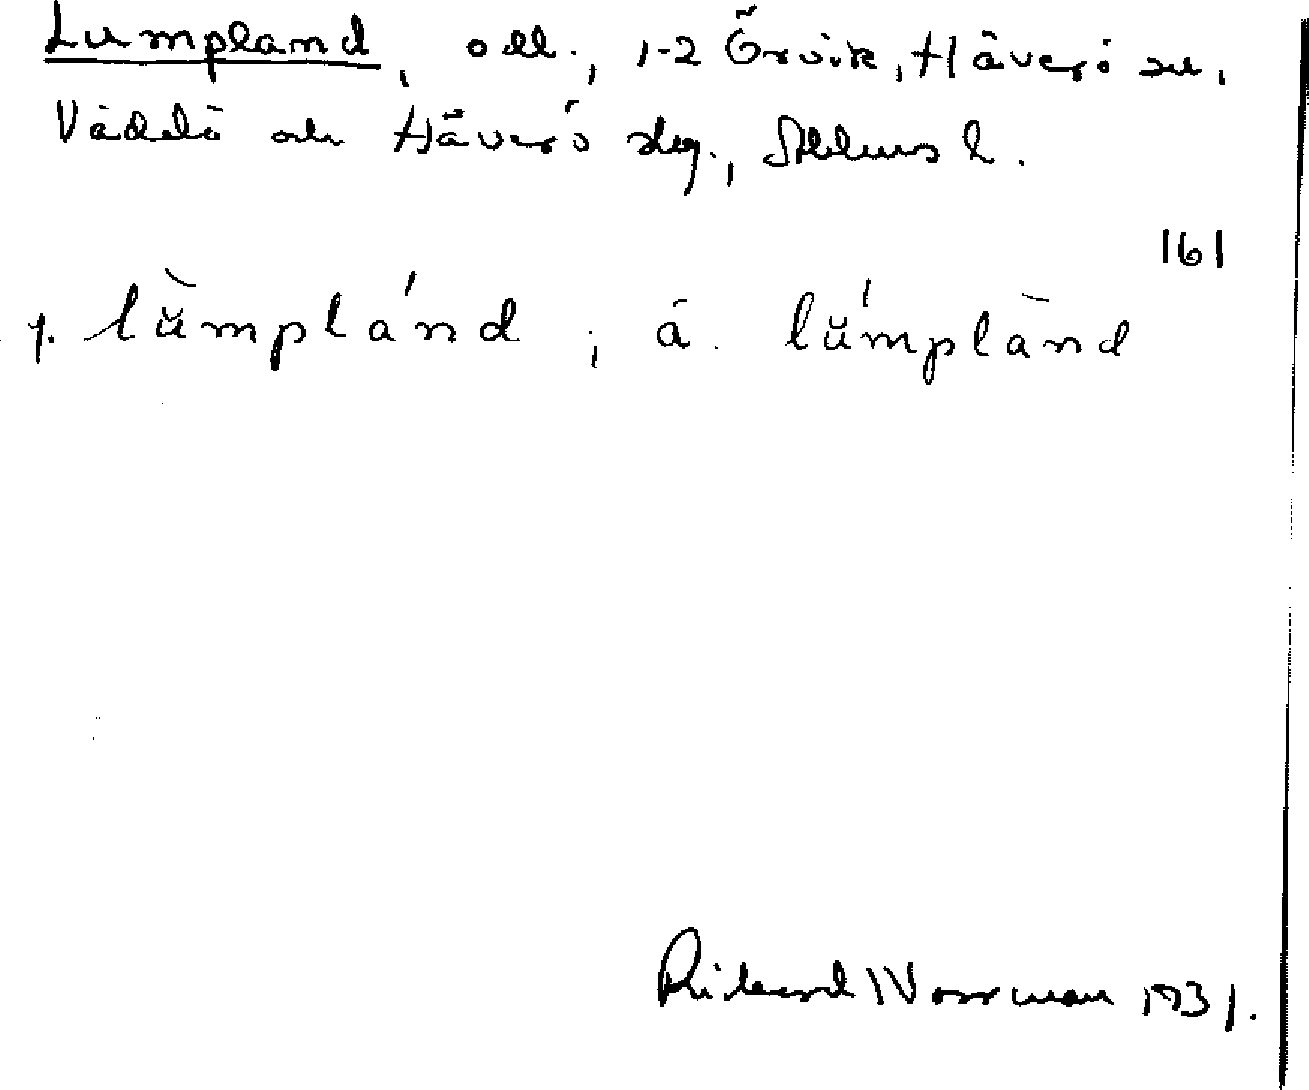 Lumpland, oll., 1-2 Örvik, Häverö sn,
Väddö och Häverö slg., Sthlms l.
161
y. lùmplánd ; ä. lúmplànd
Rikard Norrman 1931.